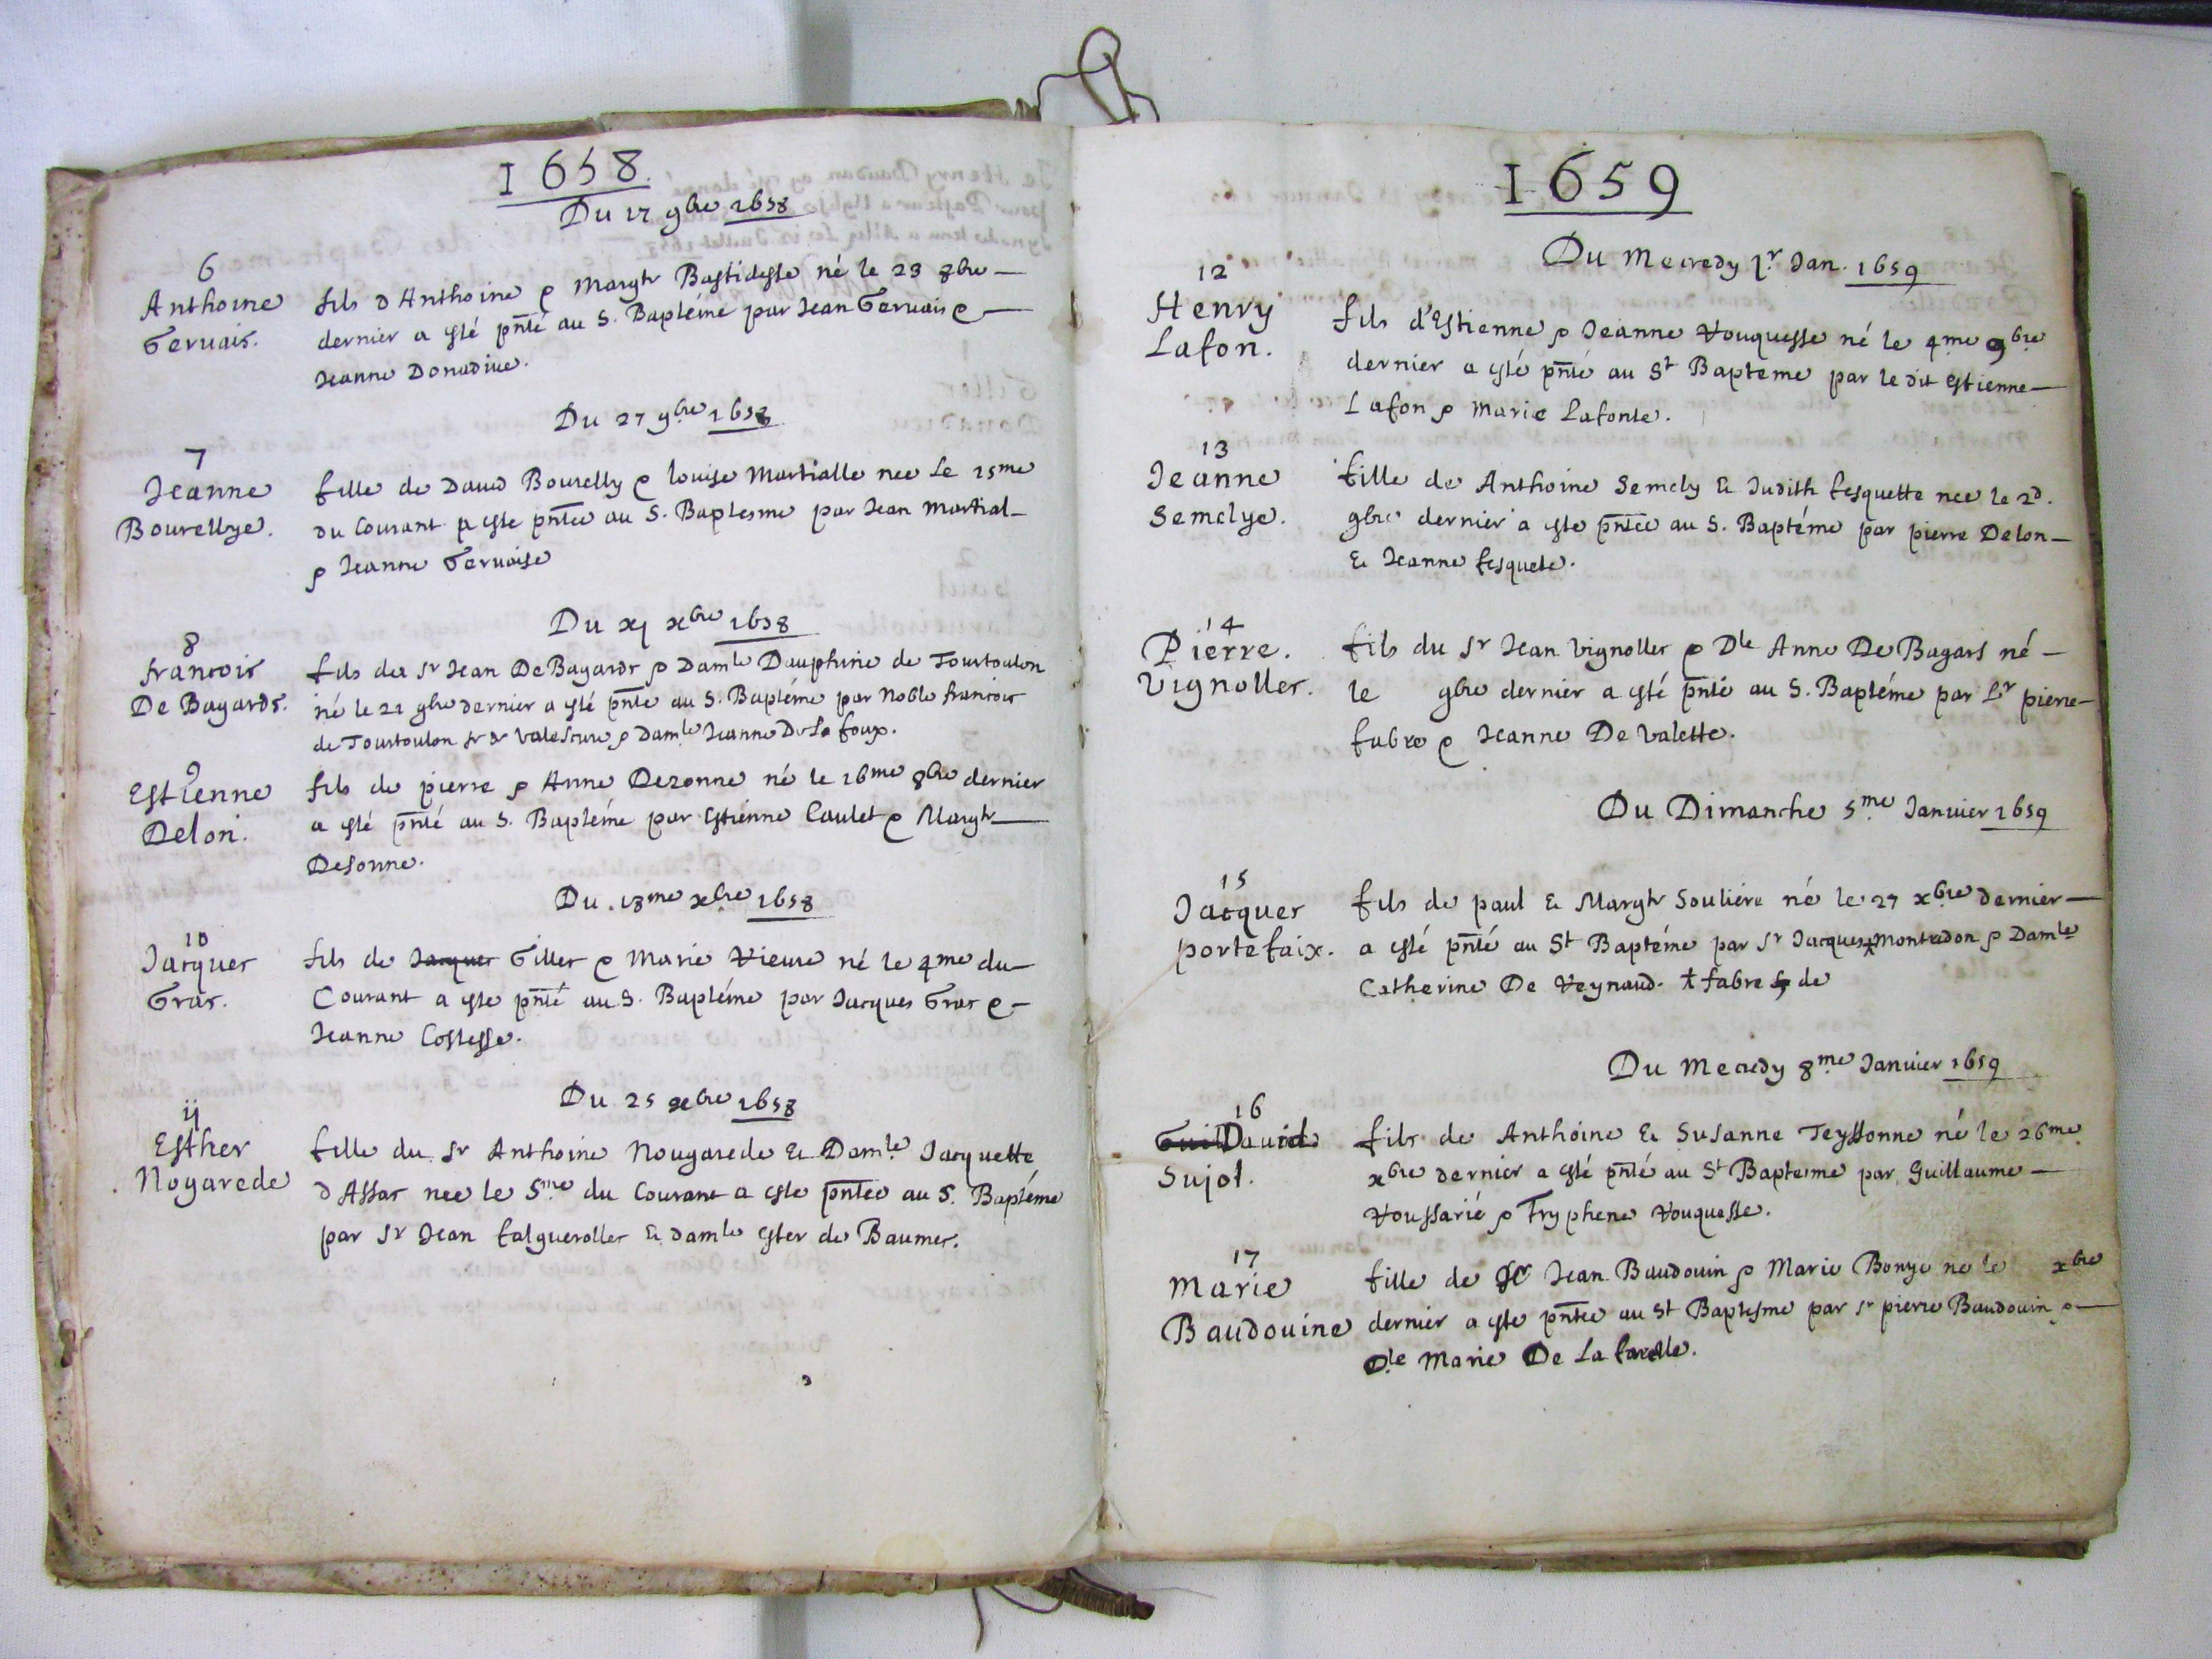 1658.
Du 17 9bre 1658
6
Anthoine
Gervais.
fils d Anthoine & Margte Bastidesse né le 23 8bre —
dernier a esté pnté au S. Baptéme par Jean Gervais & —
Jeanne Donadive.
Du 27 9bre 1658
7
Jeanne
Bourellye.
fille de David Bourelly & louise Martialle nee le 15me
du Courant a este pntée au S. Baptesme par Jean Martial —
& Jeanne Gervaise
Du xj xbre 1658
8
francois
De Bagards.
fils du Sr Jean De Bagards & Damle Dauphine de Tourtoulon
né le 21 9bre dernier a esté pnté au S. Baptéme par Noble francois
de Tourtoulon Sr de Valescure & Damle Jeanne De La foux.
9
Estienne
Delon.
fils de pierre & Anne Dezonne né le 16me 8bre dernier
a esté pnté au S. Baptéme par Estienne Caulet & Margte —
Desonne.
Du 18me xbre 1658
10
Jacques
Gras.
fils de Jacques Gilles & Marie Vieure né le 4me du —
Courant a este pnté au S. Baptéme par Jacques Gras & —
Jeanne Costesse.
Du 25 xbre 1658
11
Esther
Nogarede
fille du Sr Anthoine Nougarede & Damle Jacquette
d Assas nee le 5me du Courant a este pntée au S. Baptéme
par Sr Jean falguerolles & damle Ester de Baumes.
1659
Du Mecredy 1r Jan. 1659
12
Henry
Lafon.
fils d'Estienne & Jeanne Vouquesse né le 4me 9bre
dernier a esté pnté au St Bapteme par le dit Estienne —
Lafon & Marie Lafonte.
13
Jeanne
Semelye.
fille de Anthoine Semely & Judith fesquette nee le 2d.
9bre dernier a este pntée au S. Baptéme par pierre Delon —
& Jeanne fesquete.
14
Pierre.
Vignolles.
fils du Sr Jean Vignolles & Dle Anne De Bagars né —
le 9bre dernier a esté pnté au S. Baptéme par Sr pierre —
fabre & Jeanne De Valette.
Du Dimanche 5me Janvier 1659
15
Jacques
portefaix.
fils de paul & Margte Souliére né le 27 xbre dernier —
a esté pnté au St Baptéme par Sr Jacques + Montredon & Damle
Catherine De Veynaud. + fabre Sr de
Du Mecredy 8me Janvier 1659
16
Guil David
Sujol.
fils de Anthoine & Susanne Teyssonne né le 26me
xbre dernier a esté pnté au St Bapteme par Guillaume —
Voussarié & Tryphene Vouquesse.
17
Marie
Baudouine
fille de Sr Jean Baudouin & Marie Bonye ne le xbre
dernier a este pntée au St Baptesme par Sr pierre Baudouin & —
Dle Marie De La farelle.